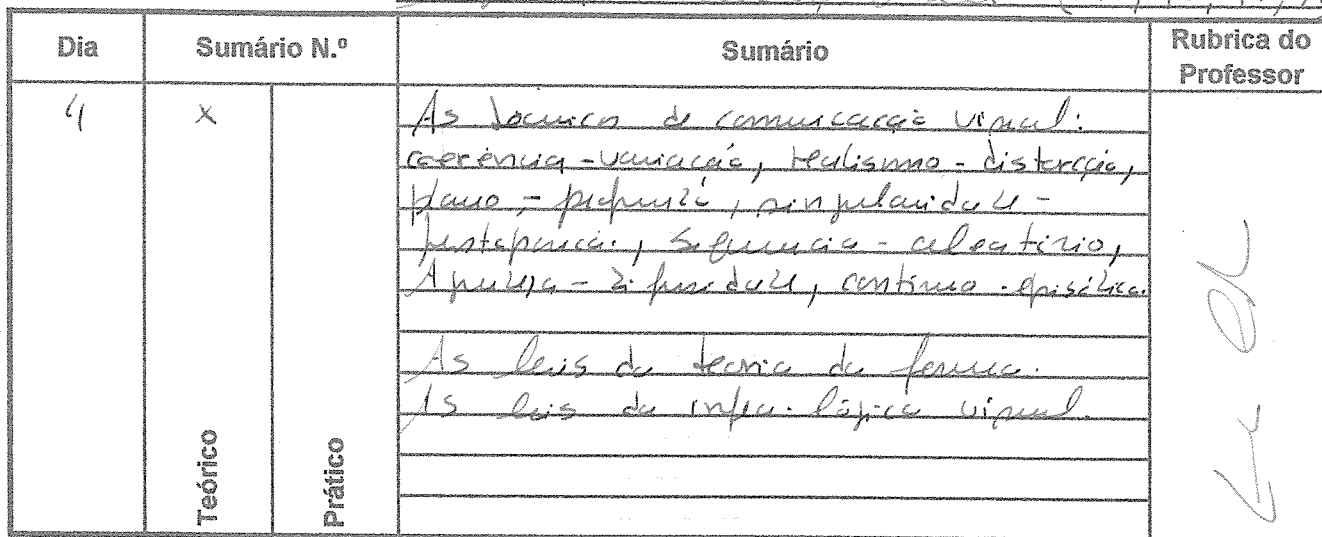 Dia
Sumário N.º
Sumário
Rubrica do
Professor
4
x
As técnicas de comunicação visual:
coerência - variação, realismo - distorção,
plano - profundo, singularidade -
justaposição, sequencia - aleatório,
Agudeza - difusidade, continuo - episódico.
As leis da teoria da forma.
As leis da infra-lógica visual.
Teórico
Prático